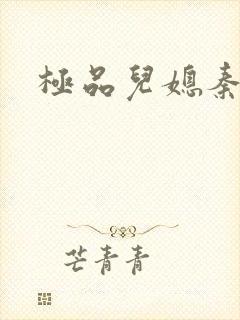 極品兒媳秦
芒青青